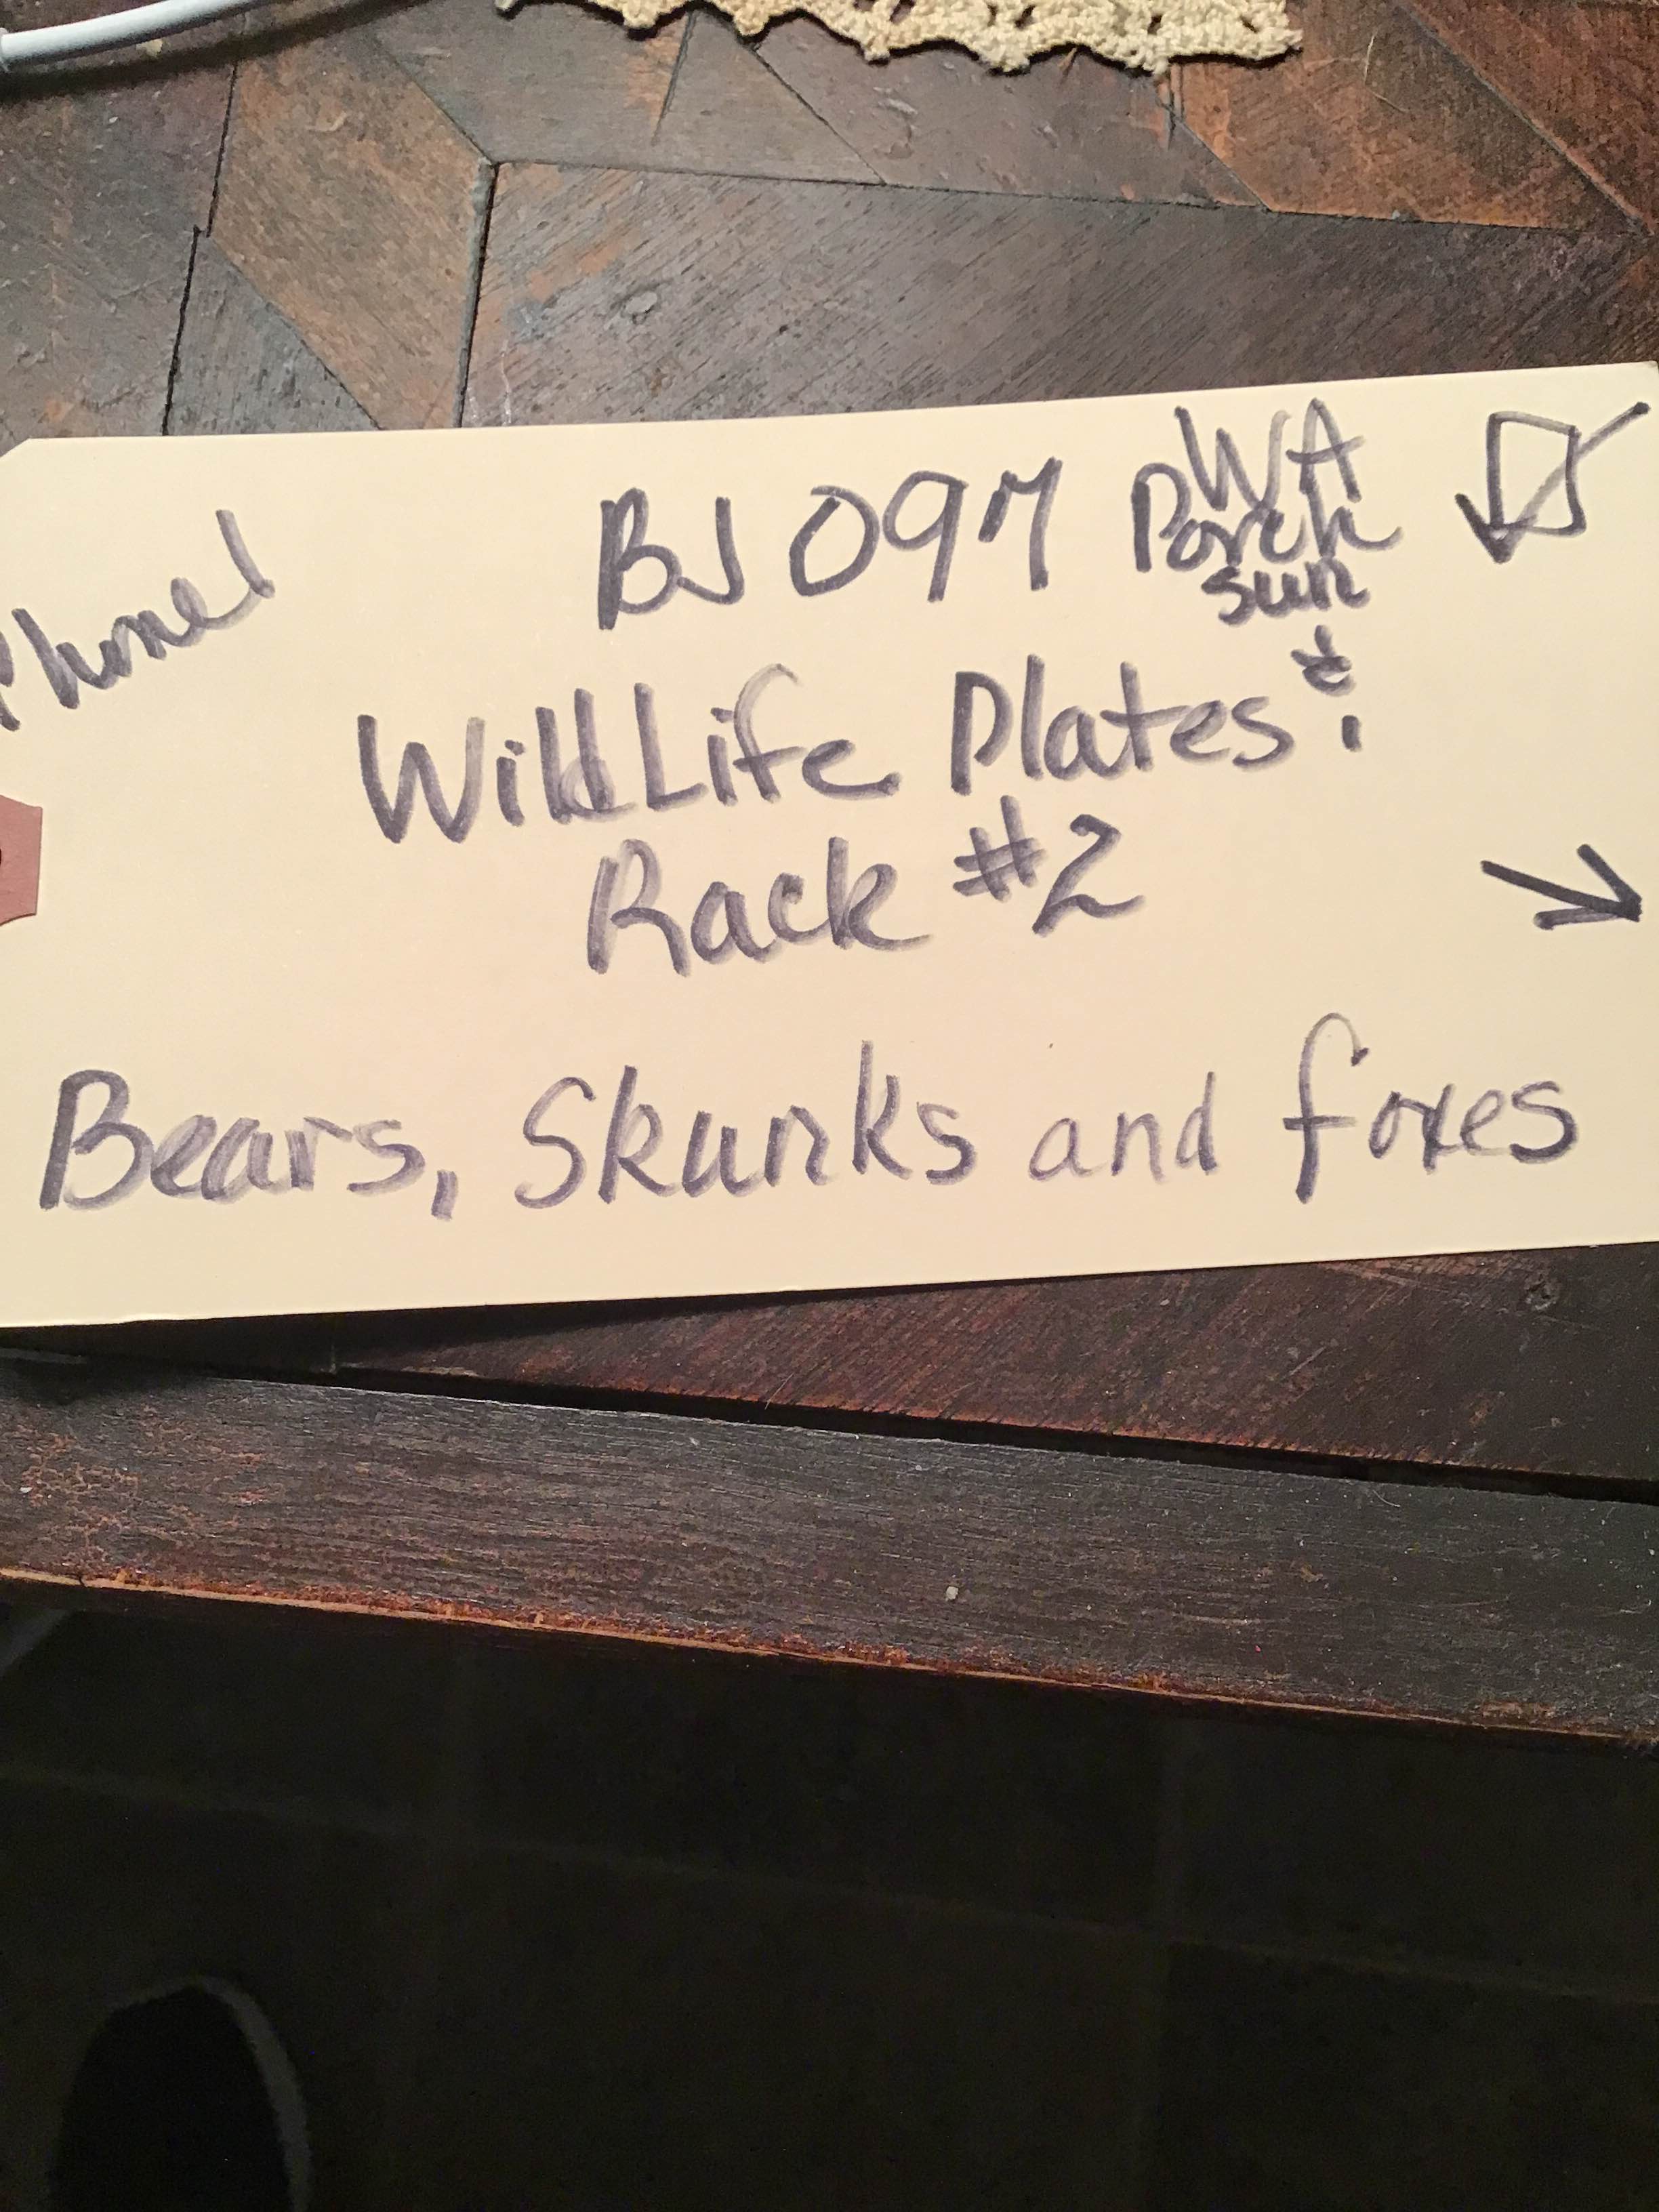 Phone!
BJ 097
WA
Porch
sun
WildLife Plates &
Rack #2
Bears, Skunks and foxes